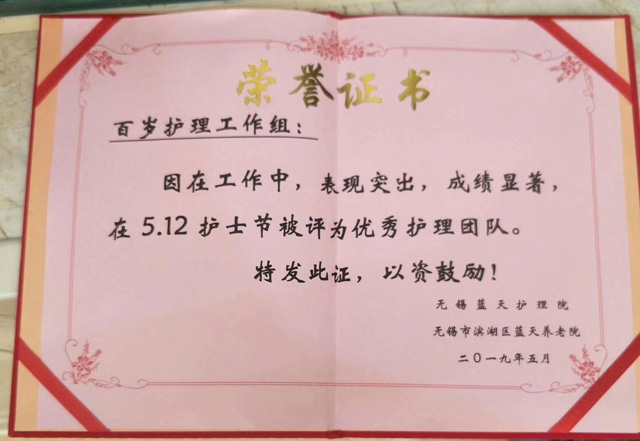 荣誉证书
百岁护理工作组：
因在工作中，表现突出，成绩显著，
在5.12护士节被评为优秀护理团队。
特发此证，以资鼓励！
无锡蓝天护理院
无锡市滨湖区蓝天养老院
二〇一九年五月